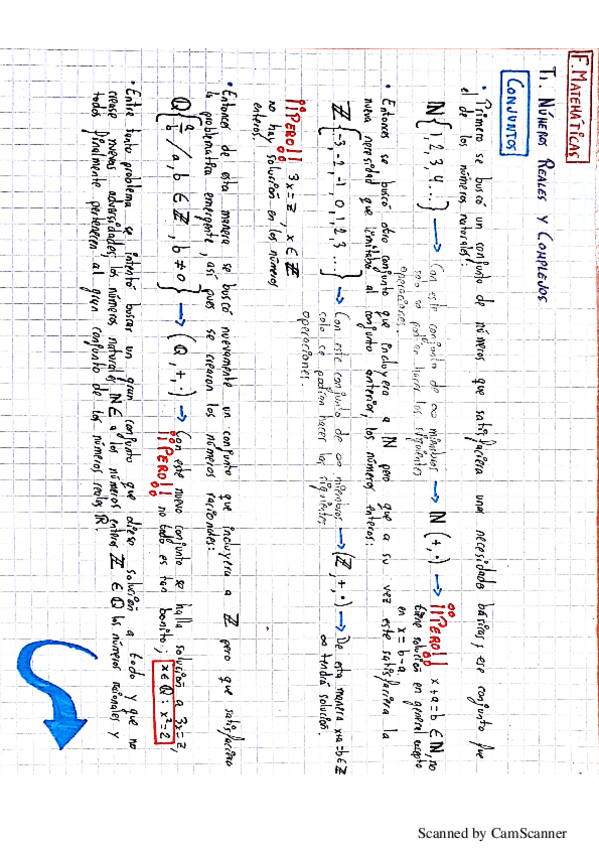 F. MATEMÁTICAS
T1. NÚMEROS REALES Y COMPLEJOS
CONJUNTOS
• Primero se buscó un conjunto de números que satisfaciera unas necesidades básicas, ese conjunto fue
el de los números naturales:
N{1,2,3,4...} → Con este conjunto de ∞ miembros → N(+,·) → ¡¡PERO!! x+a=b ∈ N, no
solo se podían hacer las siguientes tiene solución en general excepto
operaciones. en x = b-a
• Entonces se buscó otro conjunto que incluyera a N pero que a su vez este satisfaciera la
nueva necesidad que limitaba al conjunto anterior, los números enteros:
Z{-3,-2,-1,0,1,2,3...} → Con este conjunto de ∞ miembros → (Z,+,·) → De esta manera x+a=b ∈ Z
solo se podían hacer las siguientes ∞ tendrá solución.
operaciones:
¡¡PERO!! 3x=2, x ∈ Z
no hay solución en los números
enteros.
• Entonces de esta manera se buscó nuevamente un conjunto que incluyera a Z pero que satisfaciera
la problemática emergente, así pues se crearon los números racionales:
Q{a/b / a,b ∈ Z, b≠0} → (Q,+,·) → Con este nuevo conjunto se halla solución a 3x=2,
¡¡PERO!! no todo es tan bonito; x∈Q: x²=2
• Entre tanto problema se intentó buscar un gran conjunto que diese solución a todo y que no
crease nuevas adversidades, los números naturales N ∈ a los números enteros Z ∈ Q los números racionales y
todos finalmente pertenecen al gran conjunto de los números reales R.
Scanned by CamScanner